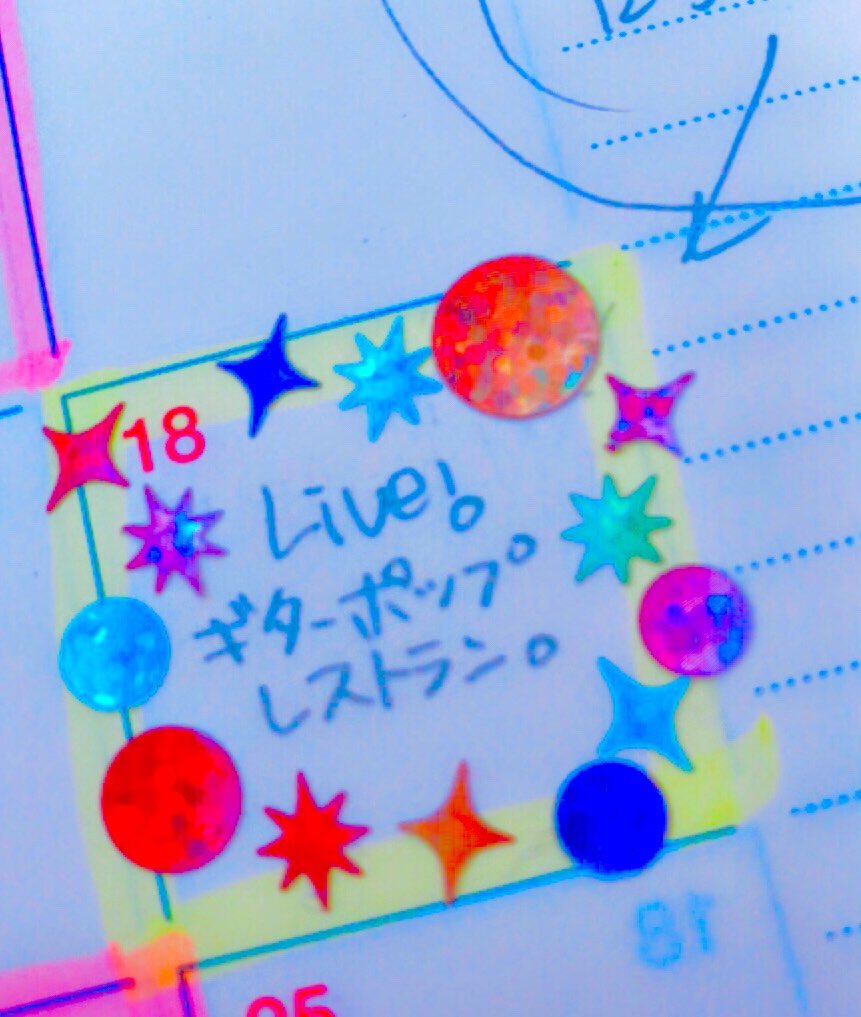 18
Live!
ギターポップ
レストラン。
25